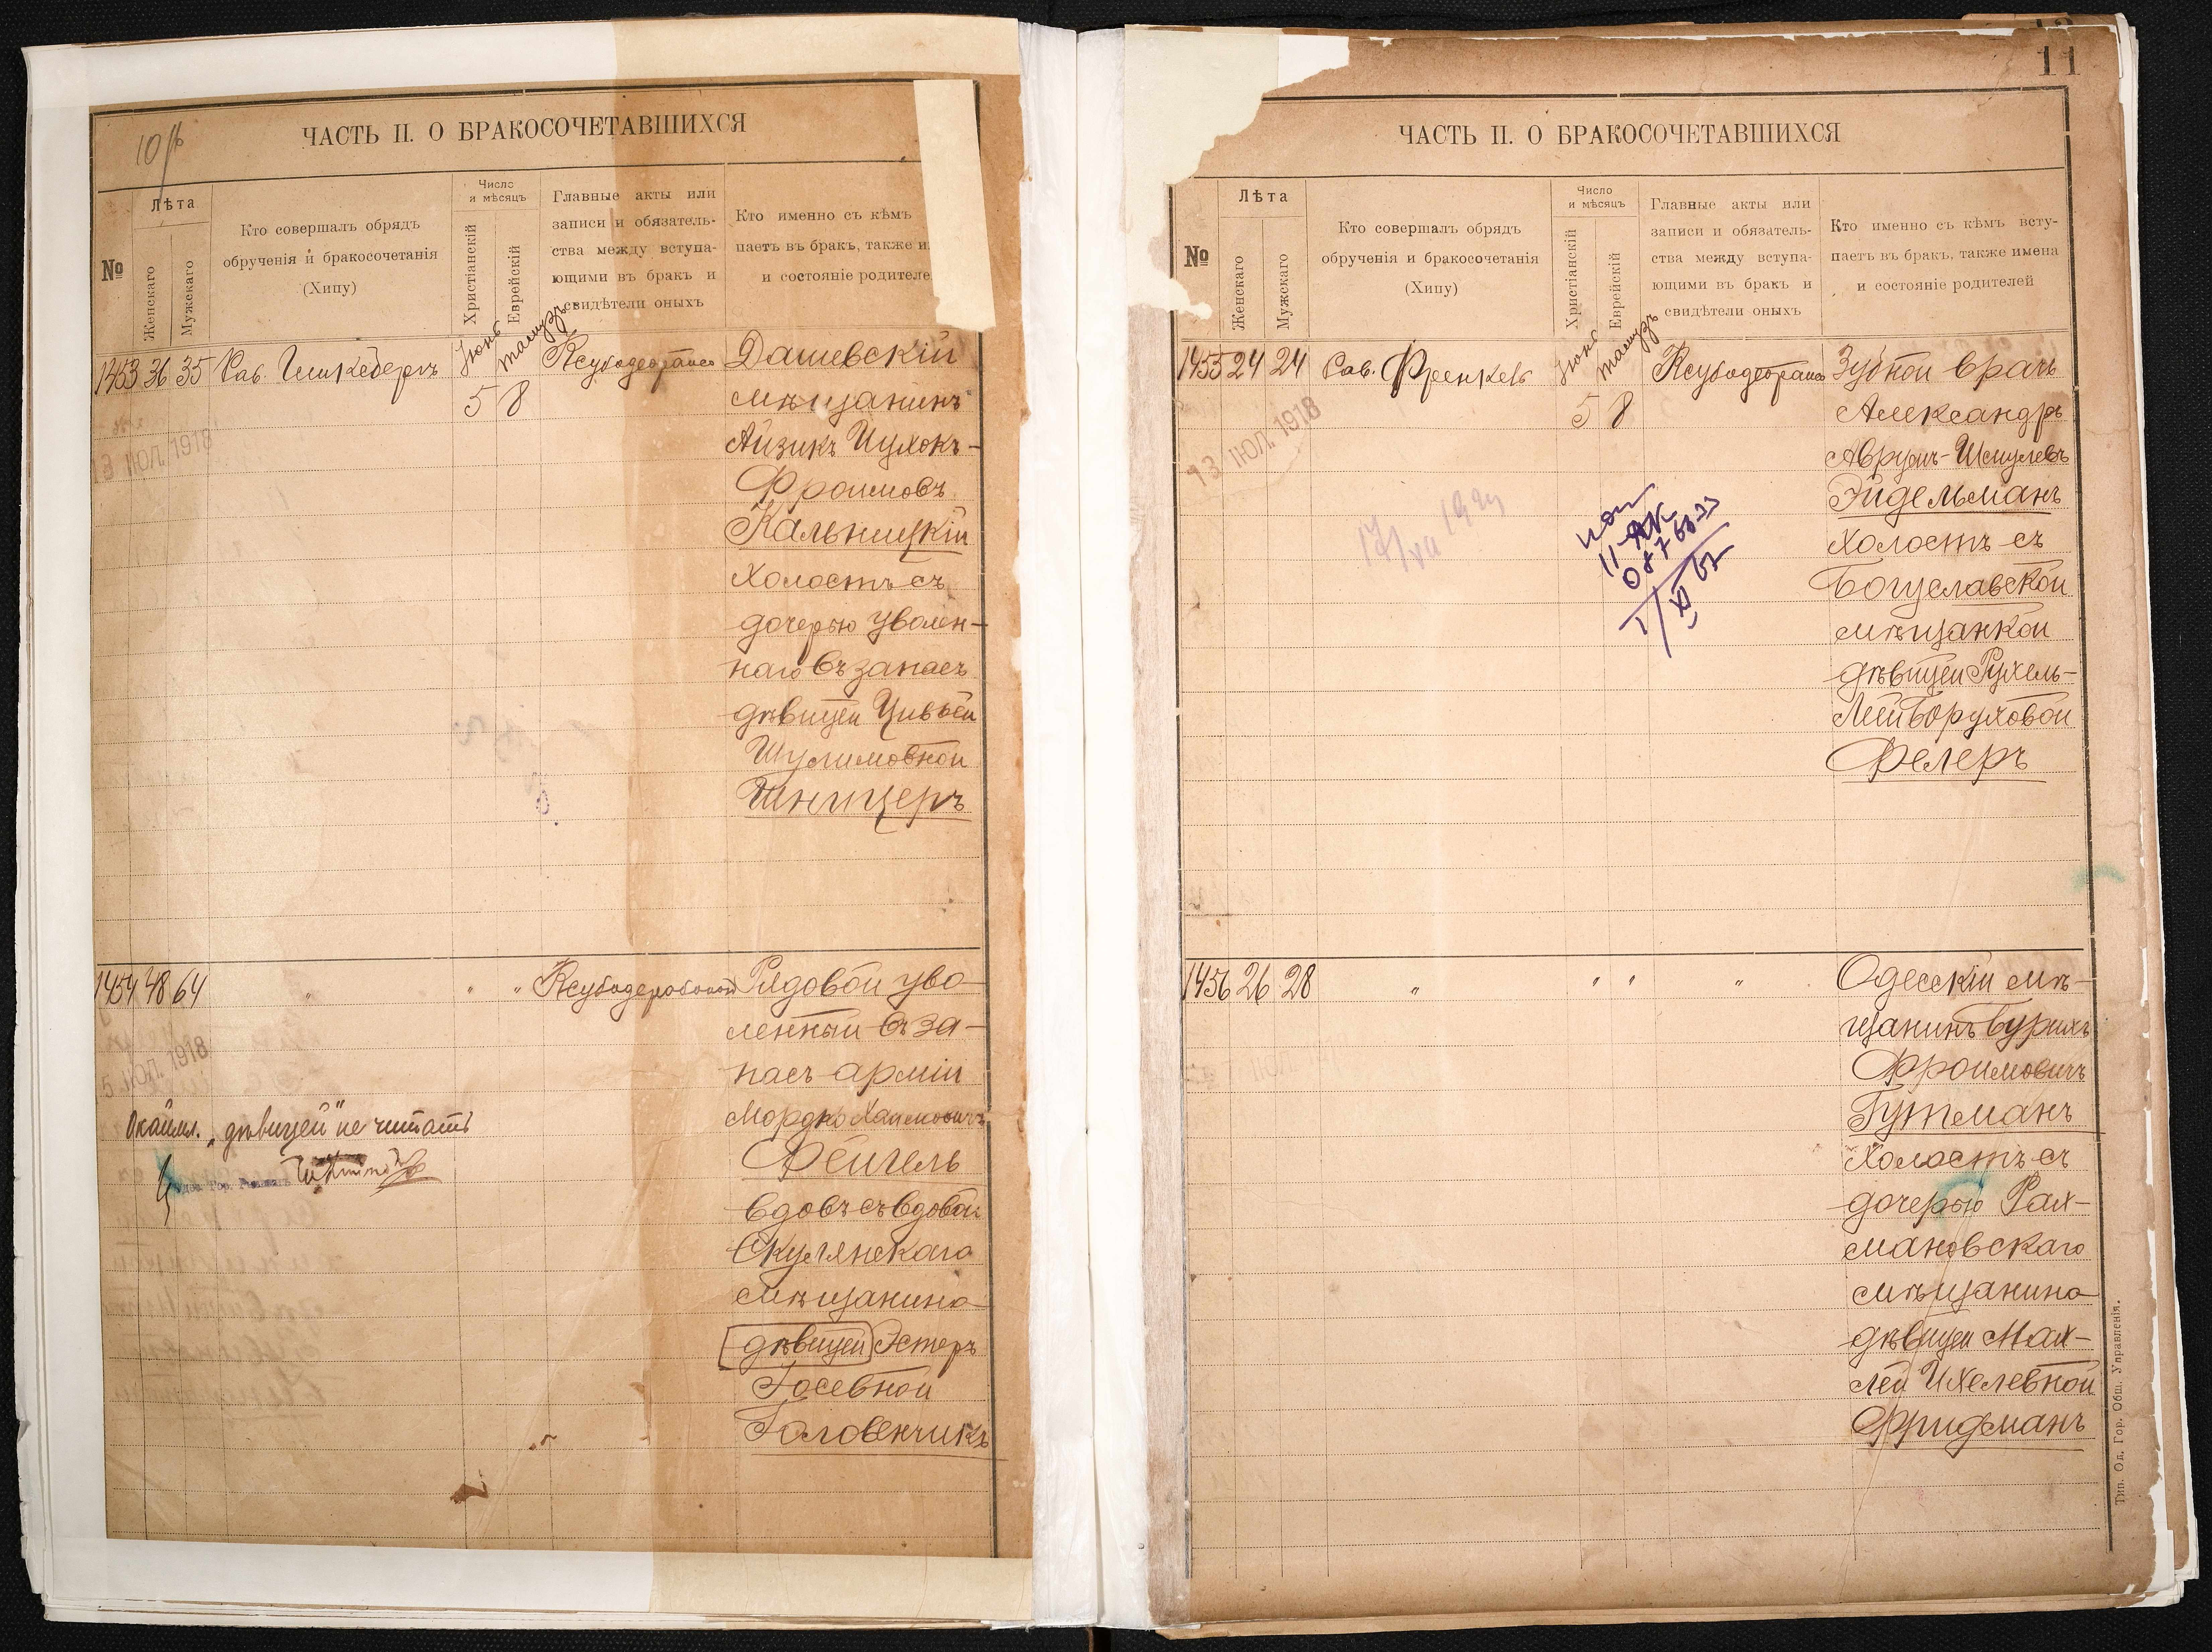 10
ЧАСТЬ II. О БРАКОСОЧЕТАВШИХСЯ
№
Лѣта
Женскаго
Мужескаго
Кто совершалъ обрядъ
обрученія и бракосочетанія
(Хипу)
Число
и мѣсяцъ
Христіанскій
Еврейскій
Главные акты или
записи и обязатель-
ства между вступа-
ющими въ бракъ и
свидѣтели оныхъ
Кто именно съ кѣмъ
паетъ въ бракъ, также и
и состояніе родителе
1453 36 35 Рав.
Іюнь Тамузъ
5 8
Дашевскій
мѣщанинъ
Айзикъ Ицхокъ-
Фроимовъ
Кальницкій
холостъ съ
дочерью уволен-
наго въ запасъ
дѣвицей Цивьей
Шулимовной
Шницеръ
3 ІЮЛ. 1918
1454 48 64 " " "
Рядовой уво-
ленный въ за-
пасъ арміи
Мордко Хаимовичъ
Фейгель
вдовъ съ вдовой
Скулянскаго
мѣщанина
дѣвицей Эстеръ
Іосевной
Головенчикъ
5 ІЮЛ. 1918
Окаймл. „дѣвицей" не читать
Гор. Раввинъ
11
ЧАСТЬ II. О БРАКОСОЧЕТАВШИХСЯ
№
Лѣта
Женскаго
Мужскаго
Кто совершалъ обрядъ
обрученія и бракосочетанія
(Хипу)
Число
и мѣсяцъ
Христіанскій
Еврейскій
Главные акты или
записи и обязатель-
ства между вступа-
ющими въ бракъ и
свидѣтели оныхъ
Кто именно съ кѣмъ всту-
паетъ въ бракъ, также имена
и состояніе родителей
1455 24 24 Рав. Френкель
Іюнь Тамузъ
5 8
Зубной врачъ
Александръ
Аврумъ-Шмулевъ
Эйдельманъ
холостъ съ
Богуславской
мѣщанкой
дѣвицей Рухель-
Лей Боруховой
Фелеръ
13 ІЮЛ. 1918
1456 26 28 " " " "
Одесскій мѣ-
щанинъ Бурихъ
Фроимовичъ
Гутманъ
холостъ съ
дочерью Рах-
мановскаго
мѣщанина
дѣвицей Мах-
лей Ихелевной
Фридманъ
Тип. Од. Гор. Общ. Управленія.